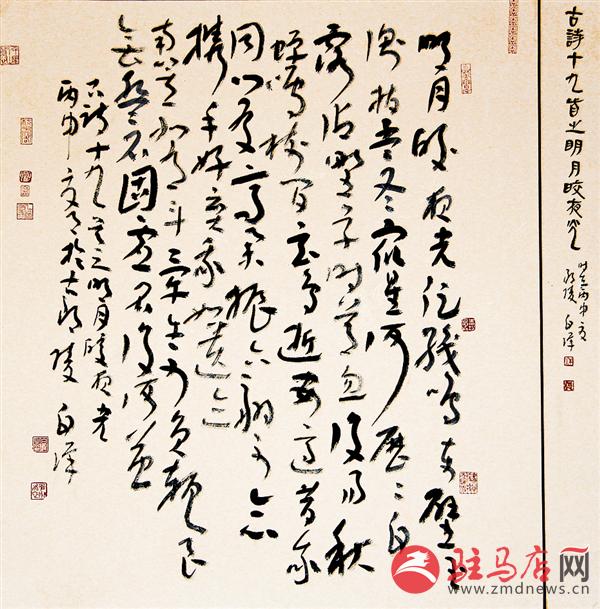 古詩十九首之明月皎夜光
時在丙申夏
朗陵 白
明月皎夜光促織鳴東壁玉
衡指孟冬眾星何歷々白
露沾野草時節忽復易秋
蟬鳴樹間玄鳥逝安適昔我
同門友高舉振六翮不念
攜手好棄我如遺迹
南箕北有斗牽牛不負軛良
無盤石固虛名復何益
古詩十九首之明月皎夜光
丙申夏月於古朗陵 白
驻马店网
www.zmdnews.cn